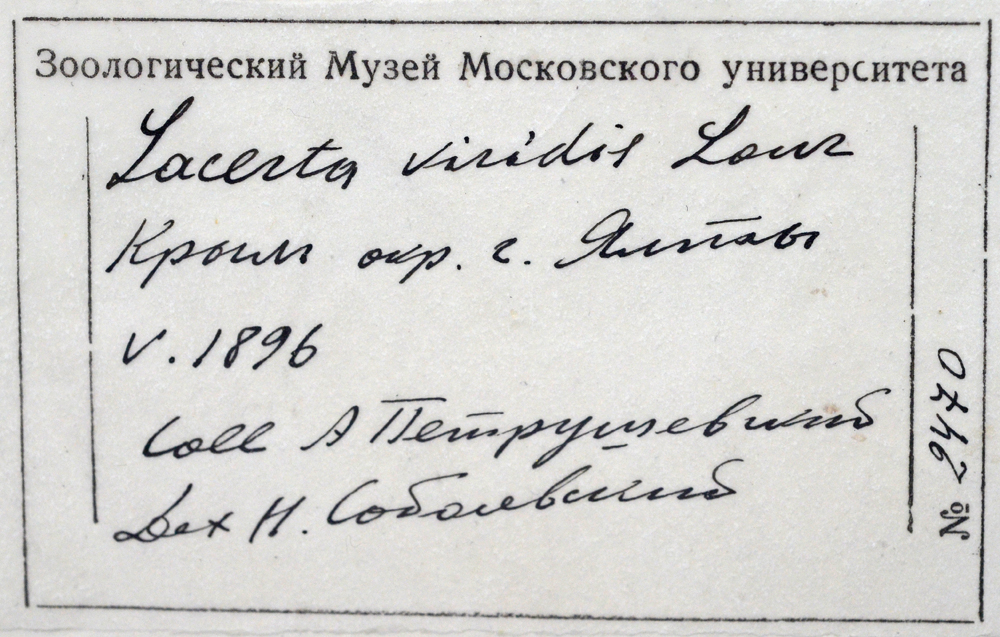 Зоологический Музей Московского университета
Lacerta viridis Laur
Крым окр. г. Ялты
V. 1896
Coll А Петрушевский
Дех Н. Соболевский
№ 2470